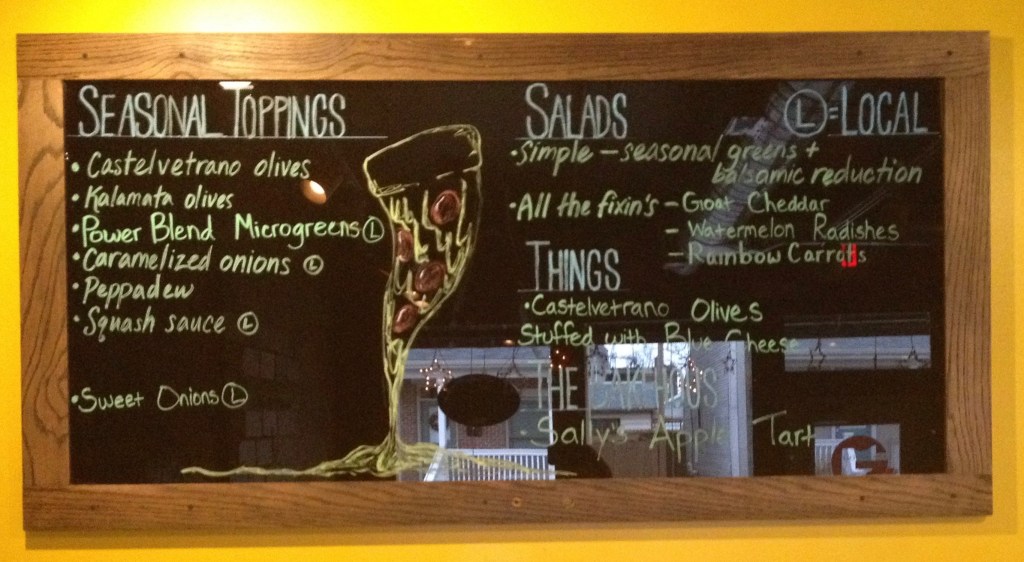 SEASONAL TOPPINGS
• Castelvetrano olives
• Kalamata olives
• Power Blend Microgreens Ⓛ
• Caramelized onions Ⓛ
• Peppadew
• Squash sauce Ⓛ
• Sweet Onions Ⓛ
SALADS
Ⓛ = LOCAL
• Simple – seasonal greens +
balsamic reduction
• All the fixin's – Goat Cheddar
– Watermelon Radishes
– Rainbow Carrots
THINGS
• Castelvetrano Olives
Stuffed with Blue Cheese
THE
• Sally's Apple Tart
G